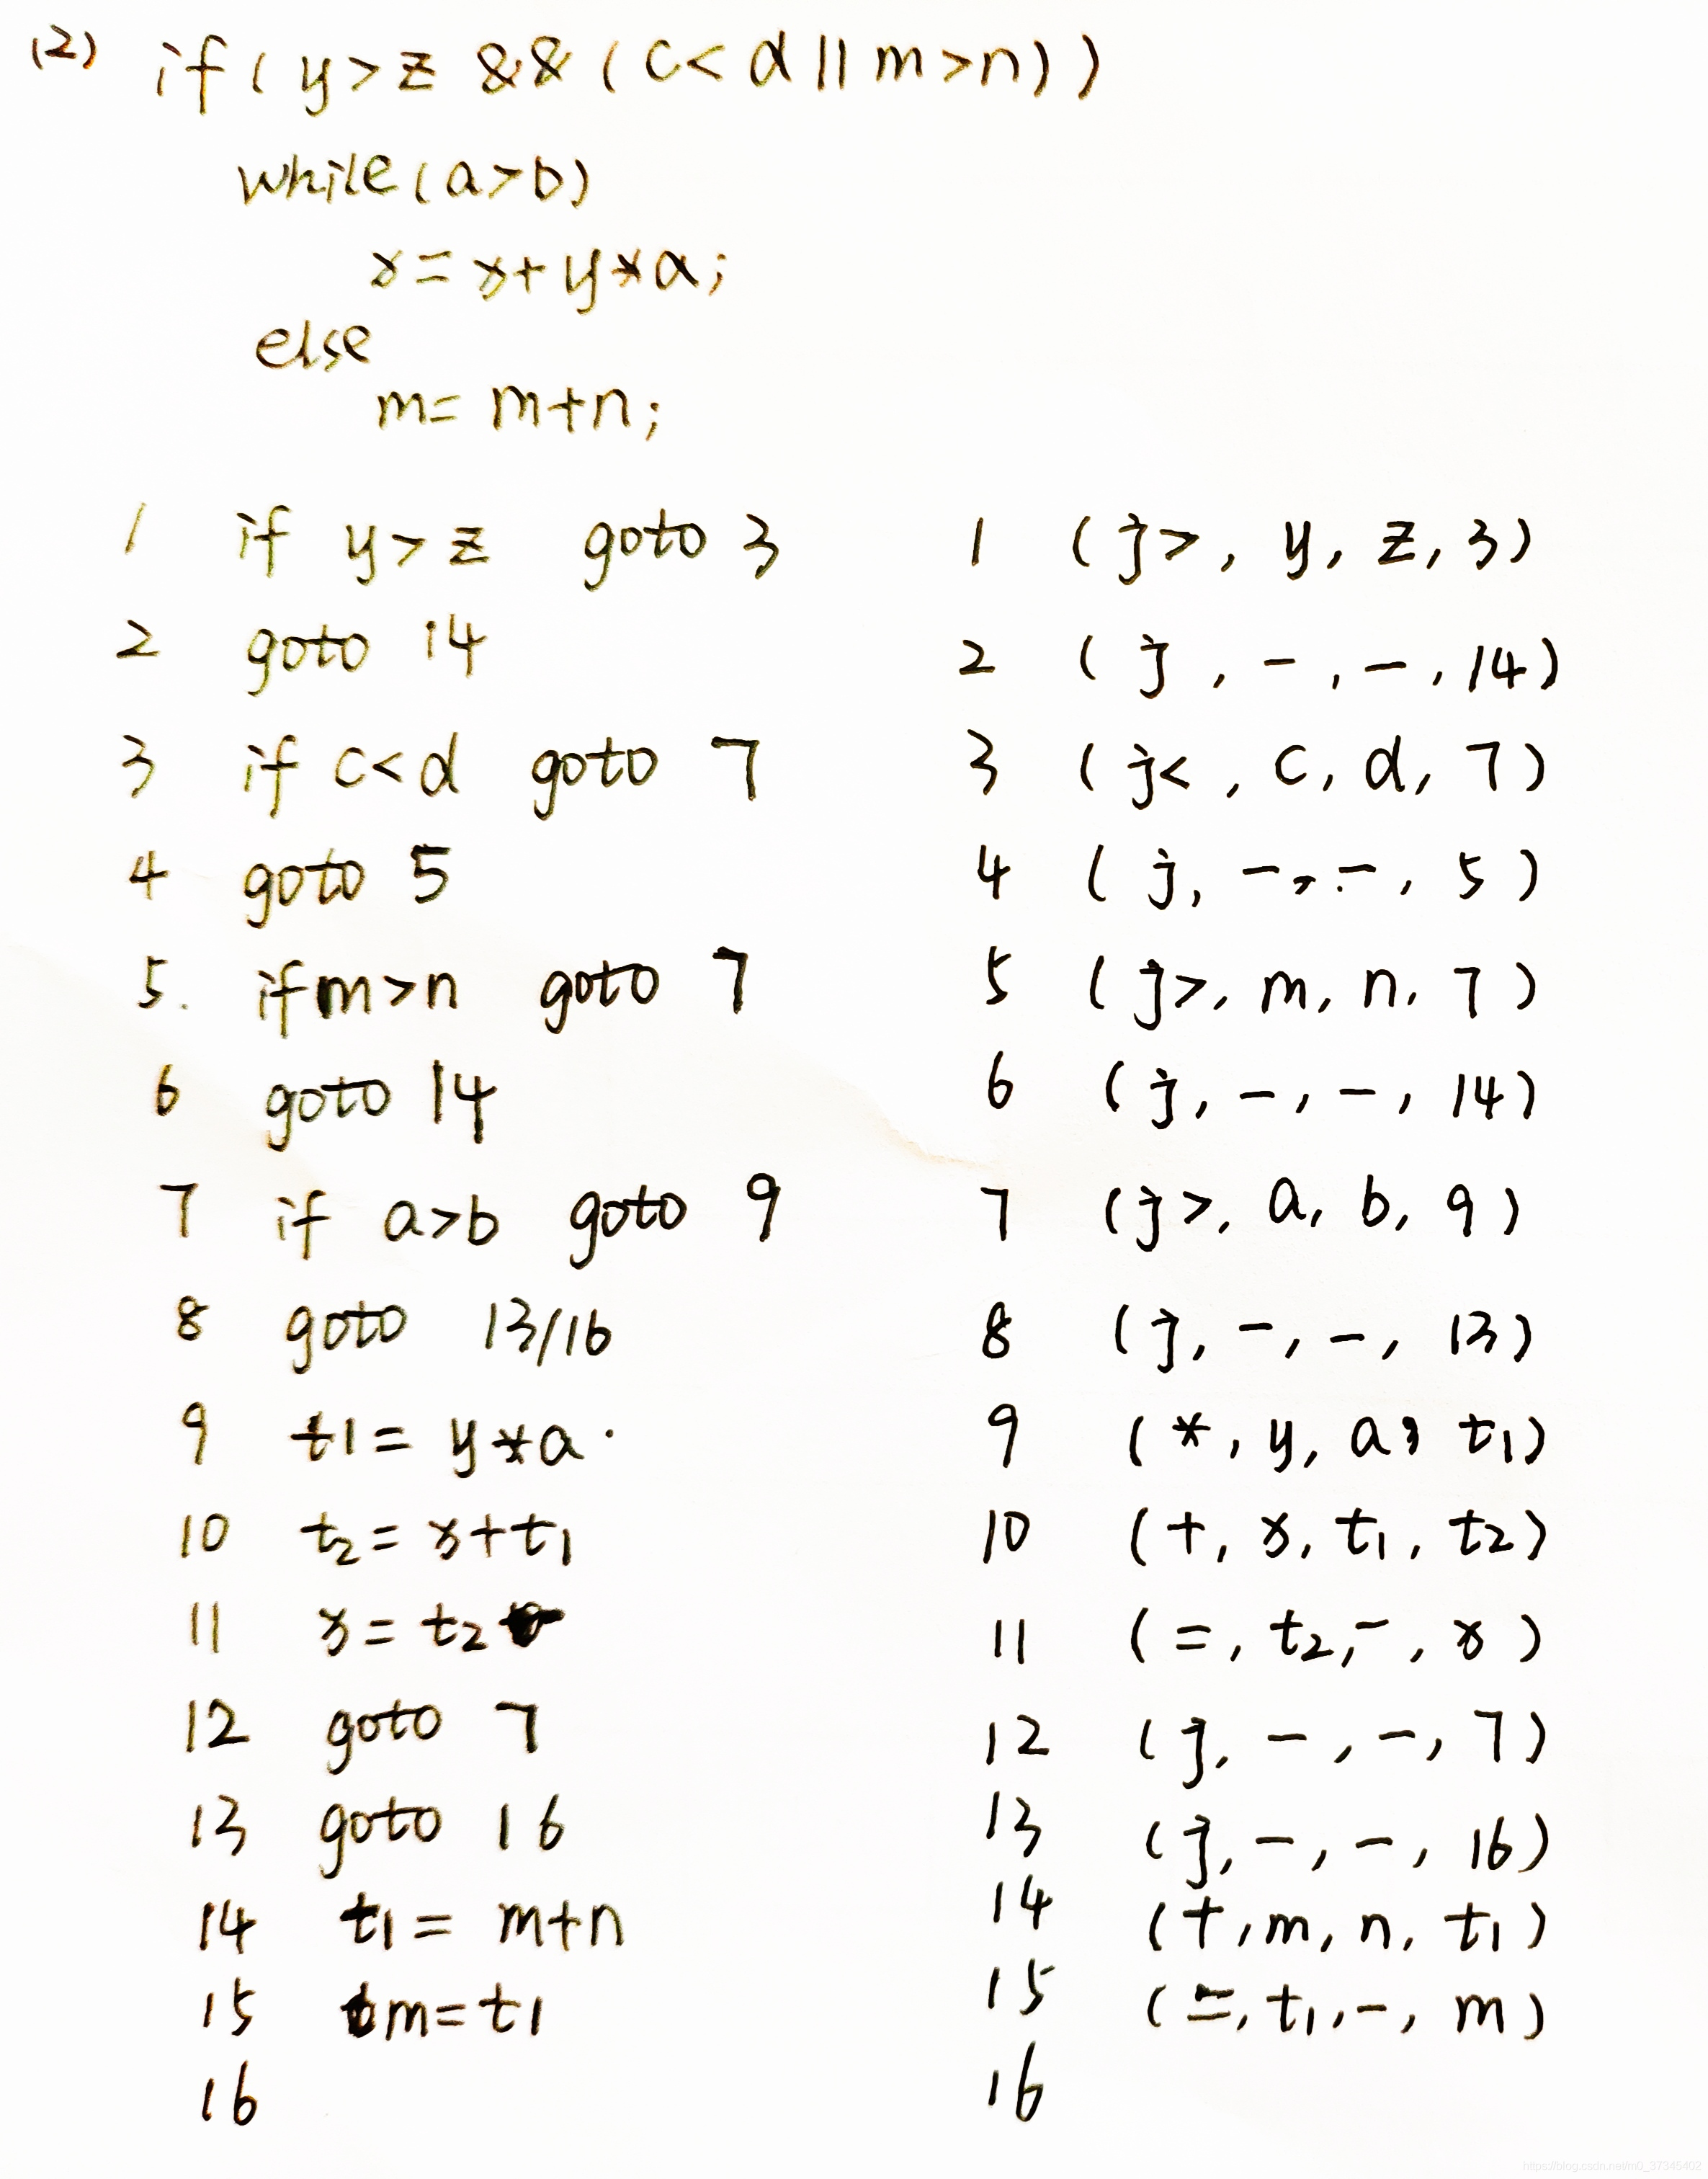 (2) if(y>z && (c<d || m>n))
while(a>b)
x=x+y*a;
else
m=m+n;
1 if y>z goto 3 1 (j>, y, z, 3)
2 goto 14 2 (j, -, -, 14)
3 if c<d goto 7 3 (j<, c, d, 7)
4 goto 5 4 (j, -, -, 5)
5. if m>n goto 7 5 (j>, m, n, 7)
6 goto 14 6 (j, -, -, 14)
7 if a>b goto 9 7 (j>, a, b, 9)
8 goto 13/16 8 (j, -, -, 13)
9 t1=y*a 9 (*, y, a, t1)
10 t2=x+t1 10 (+, x, t1, t2)
11 x=t2 11 (=, t2, -, x)
12 goto 7 12 (j, -, -, 7)
13 goto 16 13 (j, -, -, 16)
14 t1=m+n 14 (+, m, n, t1)
15 m=t1 15 (=, t1, -, m)
16 16
https://blog.csdn.net/m0_37345402